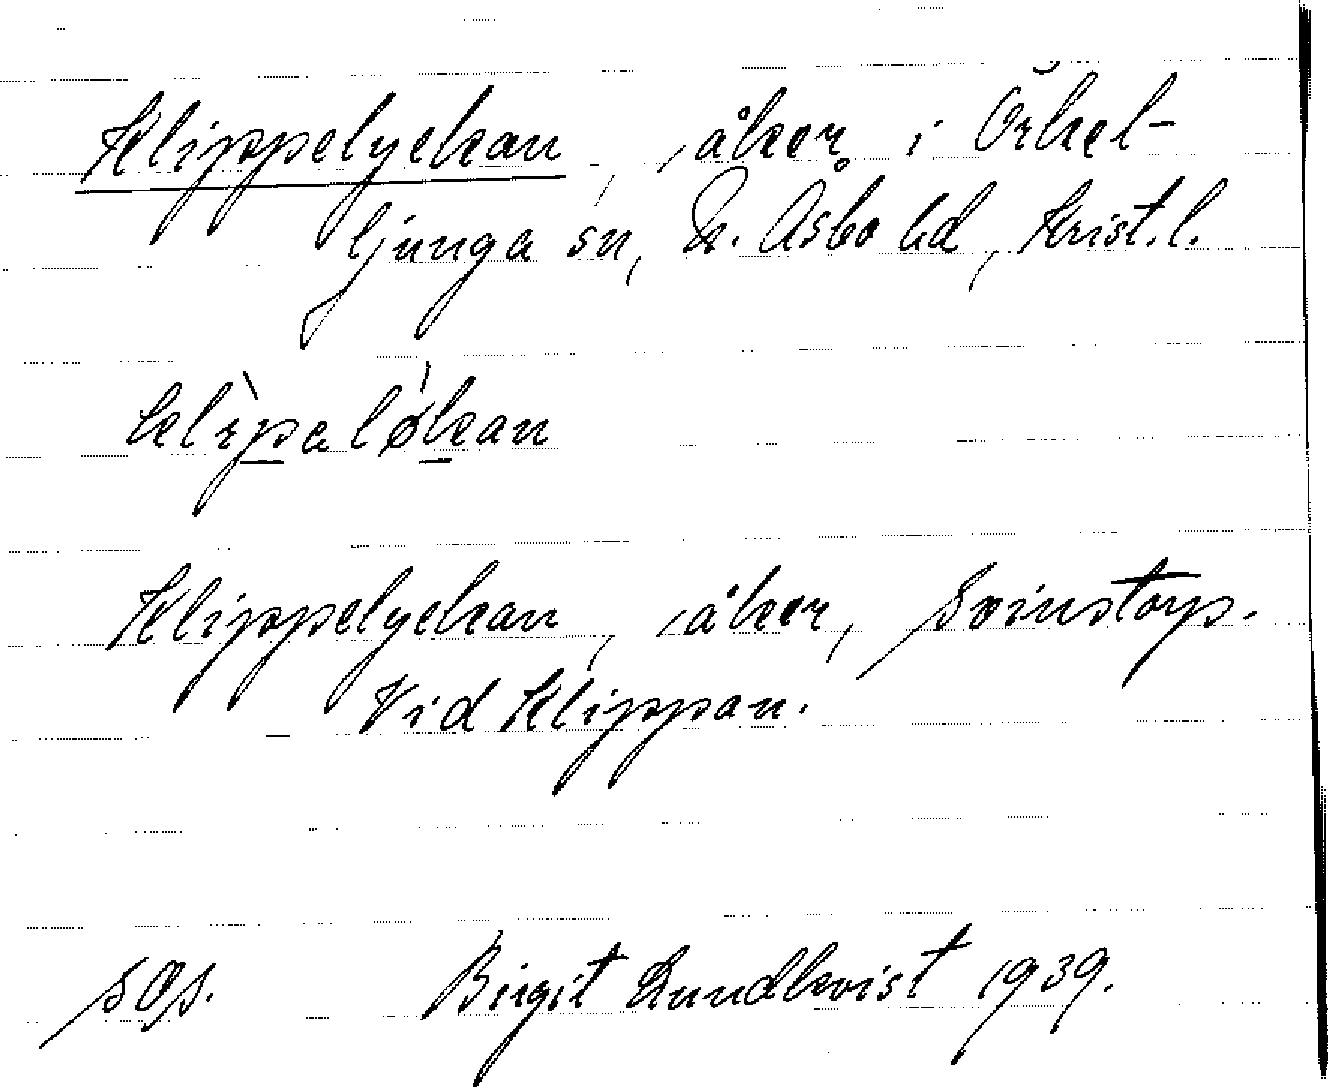 Klippelyckan, åker i Örkel-
ljunga sn, N. Åsbo hd, Krist. l.
klìpalø̀kan
Klippelyckan, åker, Svinstorp.
Vid Klippan.
sgs. Birgit Lundkvist 1939.